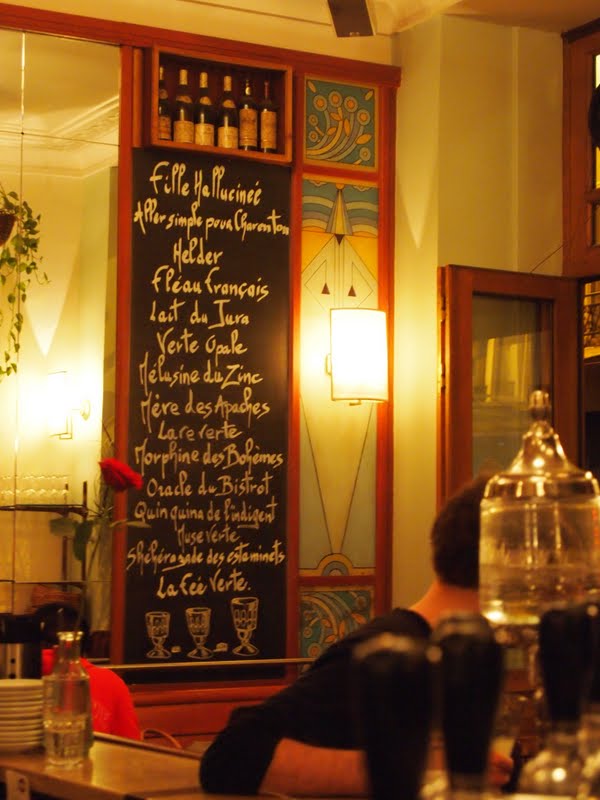 Fille Hallucineé
Aller simple pour Charenton
Helder
Fléau français
Lait du Jura
Verte Opale
Mélusine du Zinc
Mère des Apaches
La re verte
Morphine des Bohèmes
Oracle du Bistrot
Quinquina de l'indigent
Muse verte
Shéhérazade des estaminets
La Fée Verte.